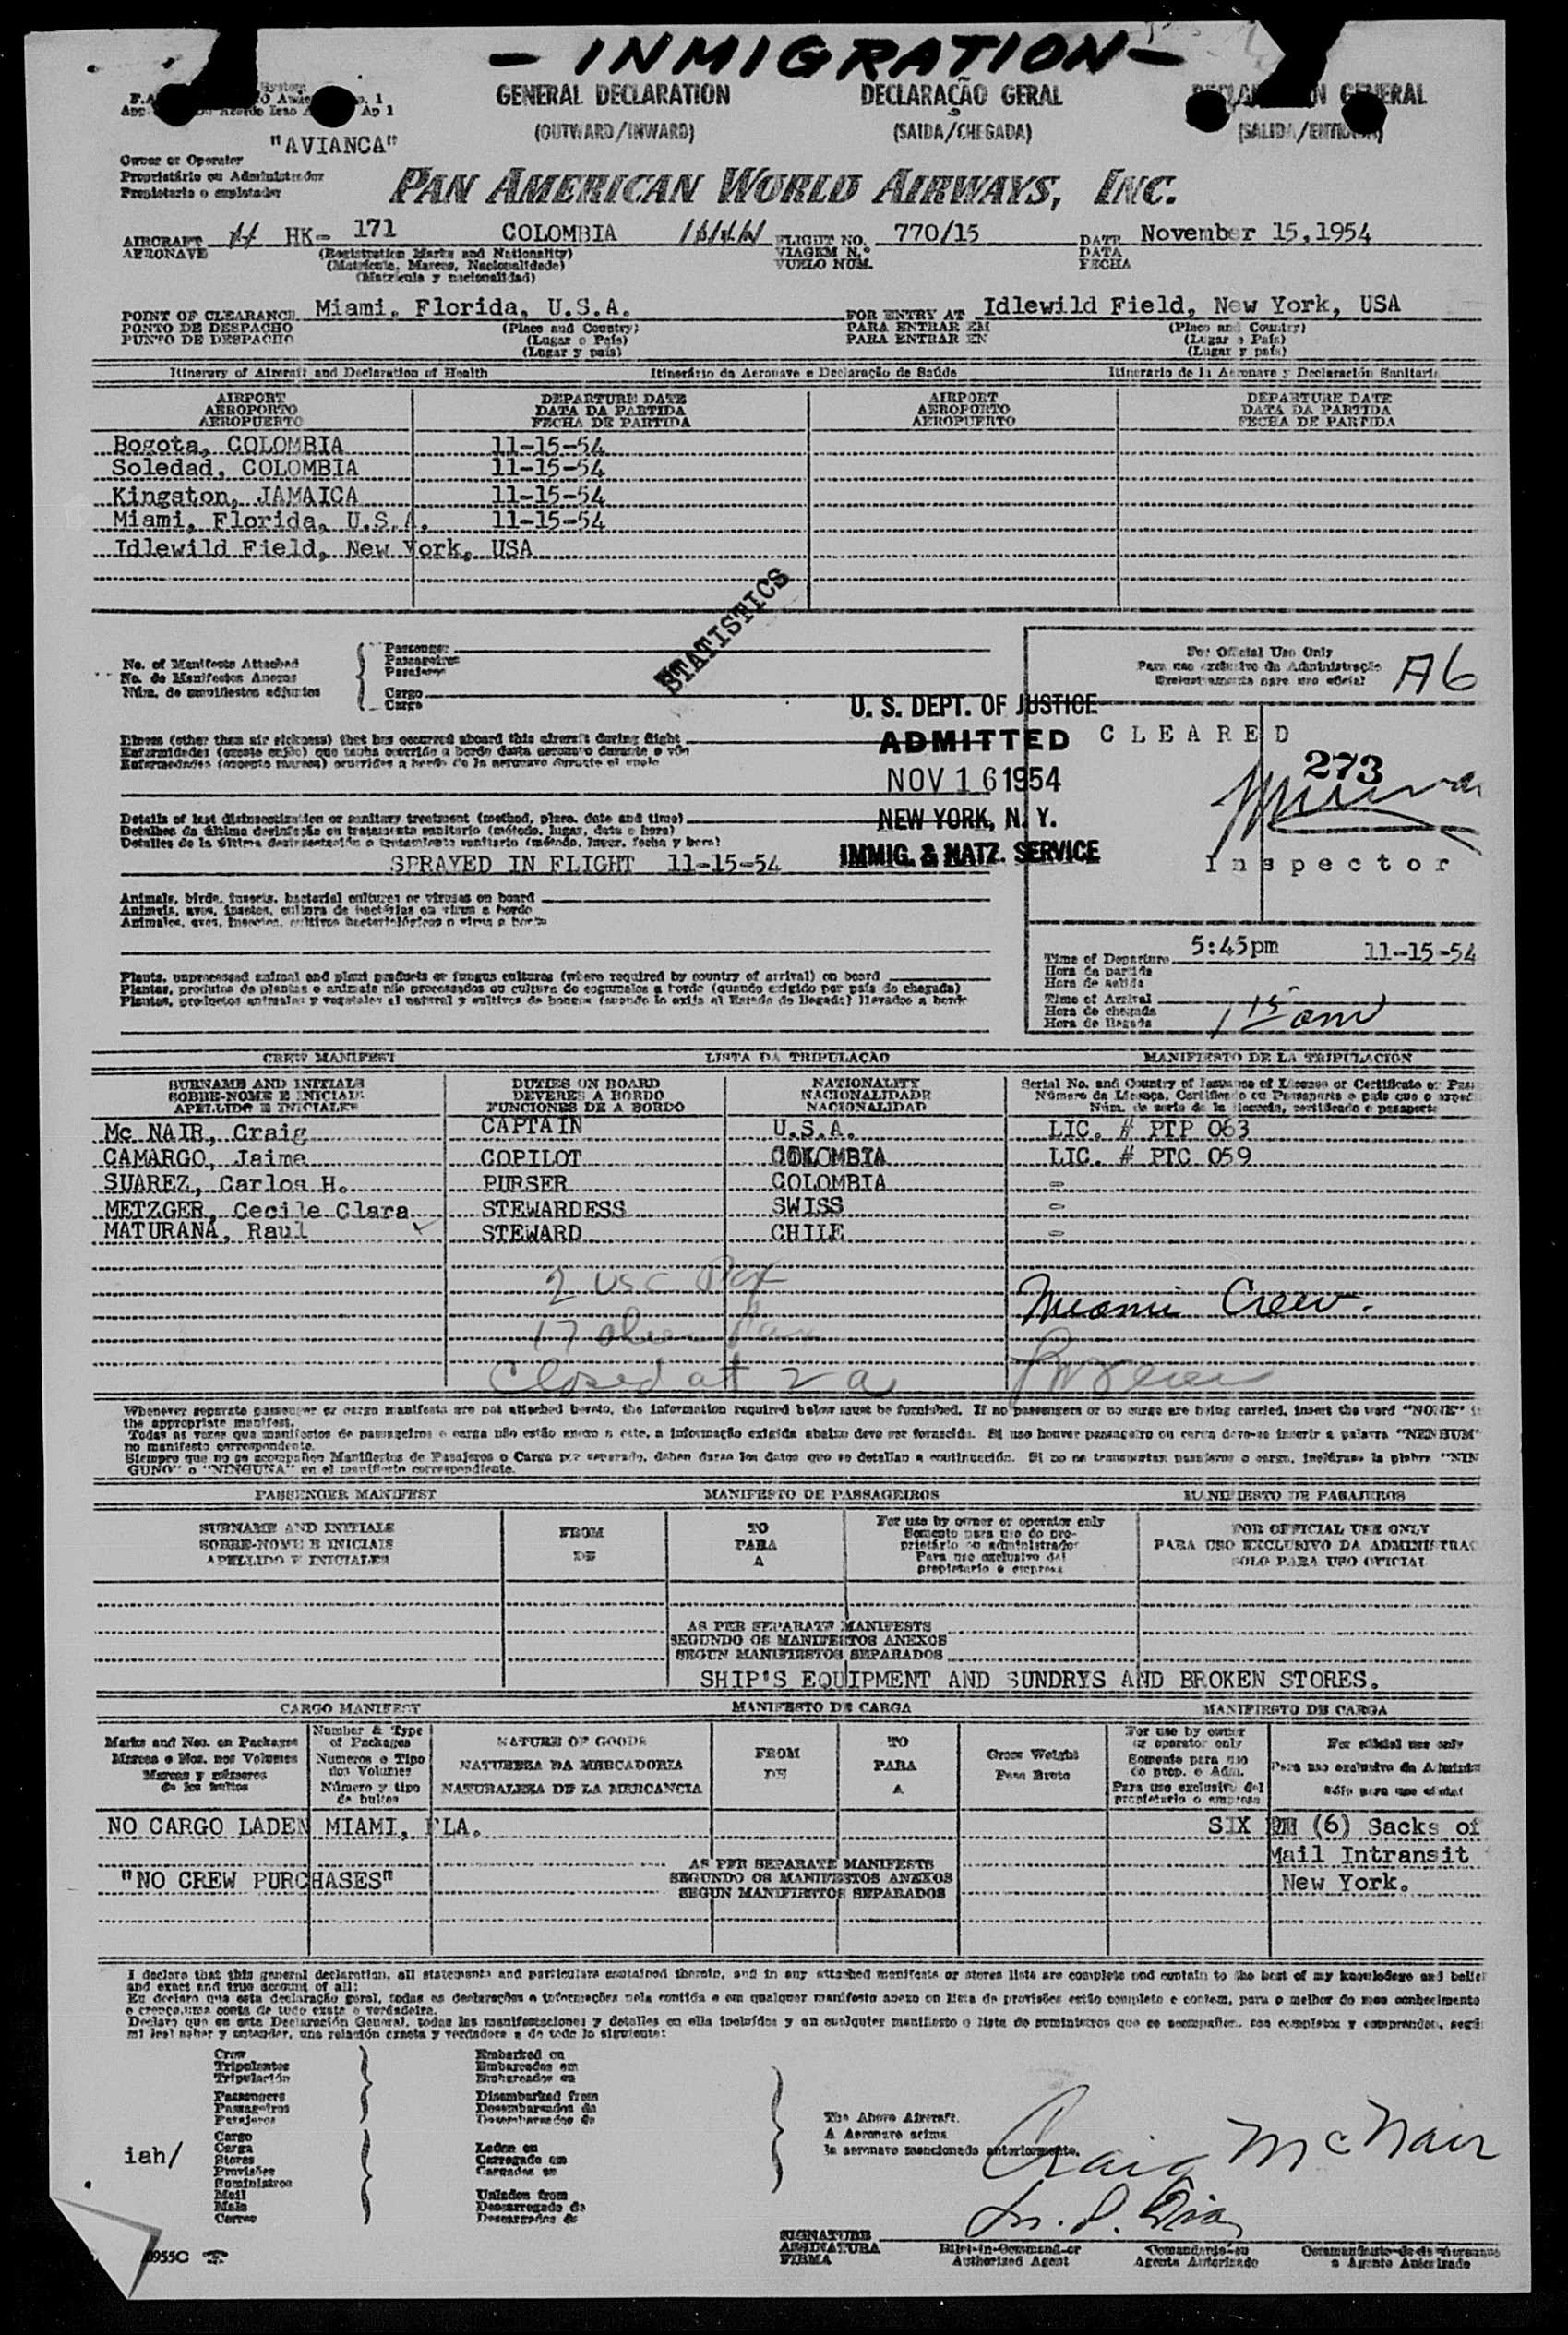 - INMIGRATION -
GENERAL DECLARATION
(OUTWARD/INWARD)
DECLARAÇÃO GERAL
(SAIDA/CHEGADA)
GENERAL
(SALIDA/ENTRADA)
"AVIANCA"
Owner or Operator
Proprietário ou Administrador
Propietario o explotador
PAN AMERICAN WORLD AIRWAYS, INC.
AIRCRAFT HK- 171 COLOMBIA FLIGHT NO. 770/15 DATE November 15,1954
AERONAVE (Registration Marks and Nationality) VIAGEM N.º DATA
(Matrícula, Marcas, Nacionalidade) VUELO NUM. FECHA
(Matrícula y nacionalidad)
POINT OF CLEARANCE Miami, Florida, U.S.A. FOR ENTRY AT Idlewild Field, New York, USA
PONTO DE DESPACHO (Place and Country) PARA ENTRAR EM (Place and Country)
PUNTO DE DESPACHO (Lugar e País) PARA ENTRAR EN (Lugar e País)
(Lugar y país) (Lugar y país)
Itinerary of Aircraft and Declaration of Health Itinerário da Aeronave e Declaração de Saúde Itinerario de la Aeronave y Declaración Sanitaria
AIRPORT DEPARTURE DATE AIRPORT DEPARTURE DATE
AEROPORTO DATA DA PARTIDA AEROPORTO DATA DA PARTIDA
AEROPUERTO FECHA DE PARTIDA AEROPUERTO FECHA DE PARTIDA
Bogota, COLOMBIA 11-15-54
Soledad, COLOMBIA 11-15-54
Kingston, JAMAICA 11-15-54
Miami, Florida, U.S.A. 11-15-54
Idlewild Field, New York, USA
STATISTICS
No. of Manifests Attached
No. de Manifestos Anexos
Núm. de manifiestos adjuntos
Passenger
Passageiros
Pasajeros
Cargo
Carga
For Official Use Only
Para uso exclusivo da Administração
Exclusivamente para uso oficial
A6
U. S. DEPT. OF JUSTICE
ADMITTED
NOV 16 1954
NEW YORK, N. Y.
IMMIG. & NATZ. SERVICE
CLEARED
273
Inspector
Illness (other than air sickness) that has occurred aboard this aircraft during flight
Enfermidades (exceto enjôo) que tenha ocorrido a bordo desta aeronave durante o vôo
Enfermedades (excepto mareos) ocurridas a bordo de la aeronave durante el vuelo
Details of last disinsectization or sanitary treatment (method, place, date and time)
Detalhes da última desinfeção ou tratamento sanitario (método, lugar, data e hora)
Detalles de la última desinsectación o tratamiento sanitario (método, lugar, fecha y hora)
SPRAYED IN FLIGHT 11-15-54
Animals, birds, insects, bacterial cultures or viruses on board
Animais, aves, insetos, cultura de bactérias ou virus a bordo
Animales, aves, insectos, cultivos bacteriológicos o virus a bordo
Plants, unprocessed animal and plant products or fungus cultures (where required by country of arrival) on board
Plantas, produtos de plantas e animais não processados ou cultura de cogumelos a bordo (quando exigido por país de chegada)
Plantas, productos animales y vegetales al natural y cultivos de hongos (cuando lo exija el Estado de llegada) llevados a bordo
Time of Departure 5:45pm 11-15-54
Hora da partida
Hora de salida
Time of Arrival 1 15 am
Hora de chegada
Hora de llegada
CREW MANIFEST LISTA DA TRIPULAÇAO MANIFIESTO DE LA TRIPULACION
SURNAME AND INITIALS DUTIES ON BOARD NATIONALITY Serial No. and Country of Issuance of License or Certificate or
SOBRE-NOME E INICIAIS DEVERES A BORDO NACIONALIDADE
APELLIDO E INICIALES FUNCIONES DE A BORDO NACIONALIDAD
Mc NAIR, Craig CAPTAIN U.S.A. LIC. # PTP 063
CAMARGO, Jaime COPILOT COLOMBIA LIC. # PTC 059
SUAREZ, Carlos H. PURSER COLOMBIA -
METZGER, Cecile Clara STEWARDESS SWISS -
MATURANA, Raul STEWARD CHILE -
2 USC Pax
Miami Crew.
17 alien Pax
Closed at 2 a
Whenever separate passenger or cargo manifests are not attached hereto, the information required below must be furnished. If no passengers or no cargo are being carried, insert the word "NONE" in
the appropriate manifest.
Todas as vezes que manifestos de passageiros e carga não estão anexo a este, a informação exigida abaixo deve ser fornecida. Si nao houver passageiro ou carga deve-se inserir a palavra "NENHUM"
no manifesto correspondente.
Siempre que no se acompañen Manifiestos de Pasajeros o Carga por separado, deben darse los datos que se detallan a continuación. Si no se transportan pasajeros o carga, inclúyase la plabra "NIN
GUNO" o "NINGUNA" en el manifiesto correspondiente.
PASSENGER MANIFEST MANIFESTO DE PASSAGEIROS MANIFIESTO DE PASAJEROS
SURNAME AND INITIALS FROM TO For use by owner or operator only FOR OFFICIAL USE ONLY
SOBRE-NOME E INICIAIS DE PARA Somente para uso do proprietário ou administrador PARA USO EXCLUSIVO DA ADMINISTRAC
APELLIDO E INICIALES A Para uso exclusivo del propietario o empresa SOLO PARA USO OFICIAL
AS PER SEPARATE MANIFESTS
SEGUNDO OS MANIFESTOS ANEXOS
SEGUN MANIFIESTOS SEPARADOS
SHIP'S EQUIPMENT AND SUNDRYS AND BROKEN STORES.
CARGO MANIFEST MANIFESTO DE CARGA MANIFIESTO DE CARGA
Marks and Nos. on Packages Number & Type of Packages NATURE OF GOODS FROM TO Gross Weight For use by owner or operator only For official use only
Marcas e Nos. nos Volumes Numeros e Tipo dos Volumes NATUREZA DA MERCADORIA DE PARA Peso Bruto Somente para uso do prop. e Adm. Para uso exclusivo da Adminis
Marcas y números de los bultos Número y tipo de bultos NATURALEZA DE LA MERCANCIA A Para uso exclusivo del propietario o empresa Sólo para uso oficial
NO CARGO LADEN MIAMI, FLA. SIX (6) Sacks of
Mail Intransit
AS PER SEPARATE MANIFESTS
"NO CREW PURCHASES" SEGUNDO OS MANIFESTOS ANEXOS New York.
SEGUN MANIFIESTOS SEPARADOS
I declare that this general declaration, all statements and particulars contained therein, and in any attached manifests or stores lists are complete and contain to the best of my knowledge and belief
and exact and true account of all:
Eu declaro que esta declaração geral, todas as declarações e informações nela contida e em qualquer manifesto anexo ou lista de provisões estão completo e contem, para o melhor do meu conhecimento
e crença,uma conta de tudo exata e verdadeira.
Declaro que en esta Declaración General, todas las manifestaciones y detalles en ella incluídos y en cualquier manifiesto o lista de suministros que se acompañen, son completos y comprenden, segú
mi leal saber y entender, una relación exacta y verdadera a de todo lo siguiente:
Crew Embarked on
Tripulantes Embarcados em
Tripulación Embarcados en
Passengers Disembarked from
Passageiros Desembarcados da
Pasajeros Desembarcados de
Cargo
Carga
Stores
Provisões
Suministros
Mail
Mala
Correo
Laden on
Carregado em
Cargados en
Unladen from
Descarregado da
Descargados de
The Above Aircraft.
A Aeronave acima
la aeronave mencionada anteriormente.
iah/
Craig McNair
SIGNATURE
ASSINATURA
FIRMA
Pilot-in-Command or
Authorized Agent
Comandante ou
Agente Autorizado
o Agente Autorizado
955C